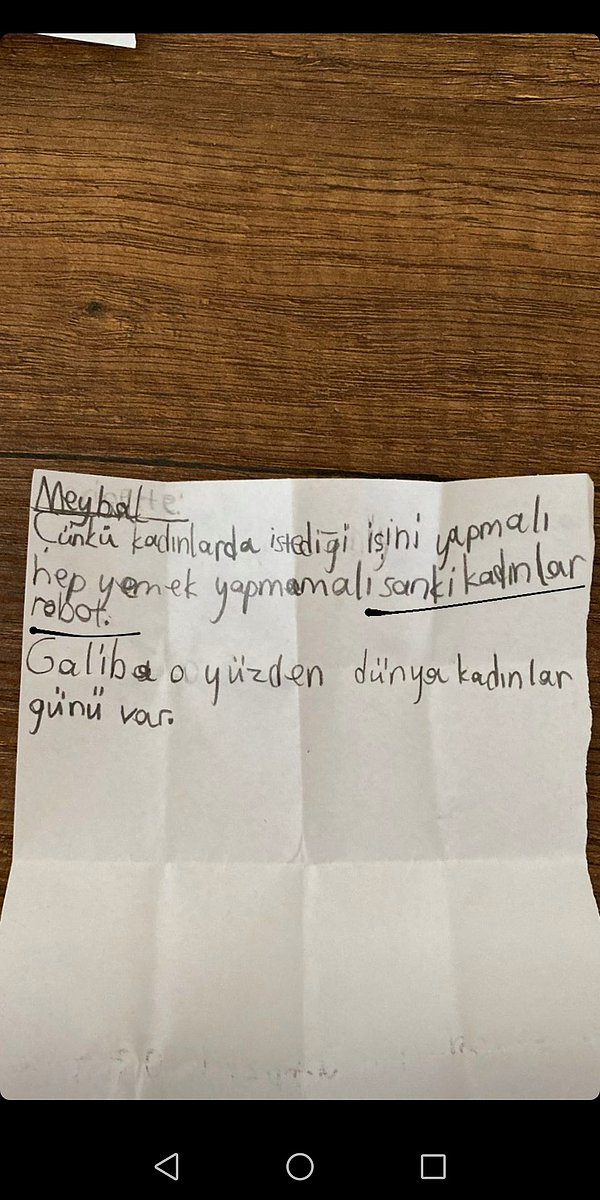 Meybal
Çünkü kadınlarda istediği işini yapmalı
hep yemek yapmamalı sanki kadınlar
robot.
Galiba o yüzden dünya kadınlar
günü var.